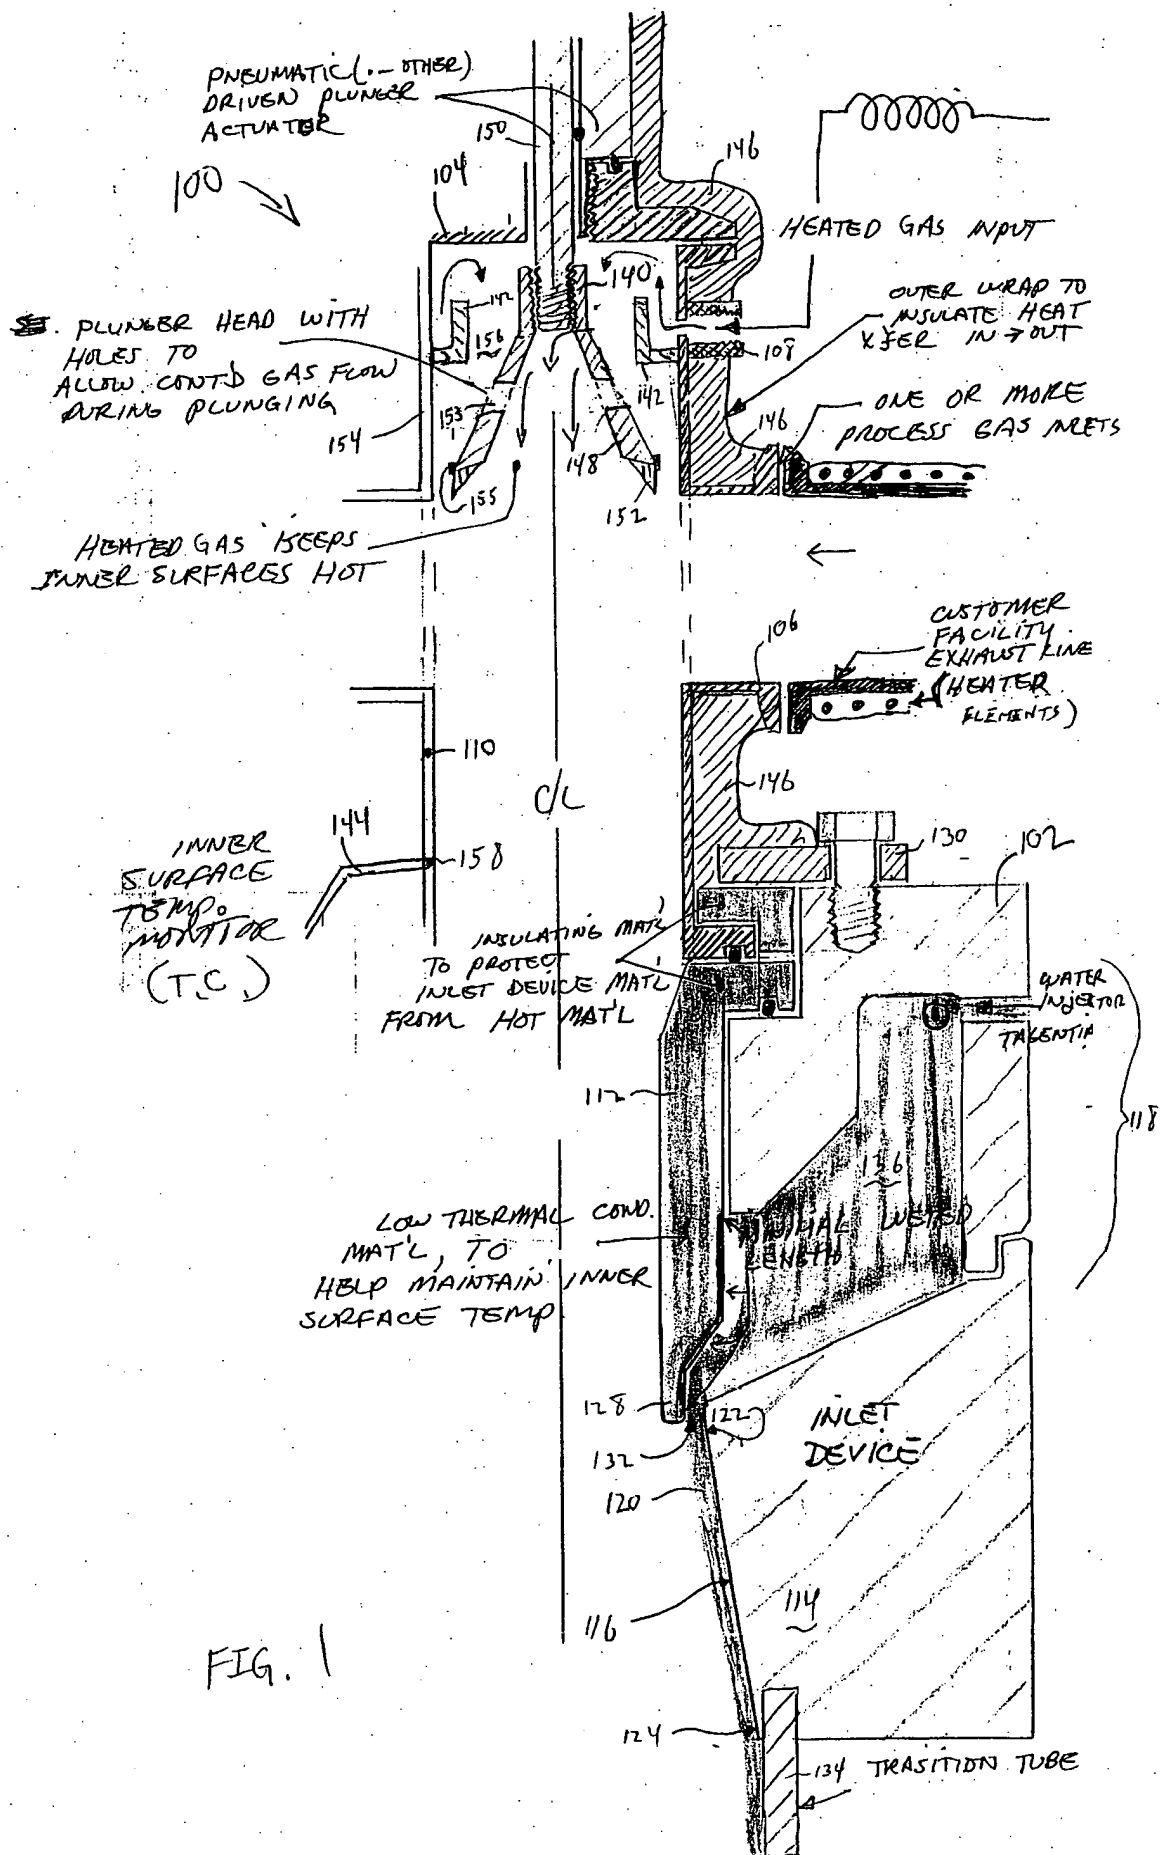 PNEUMATIC (.- OTHER)
DRIVEN PLUNGER
ACTUATER
150
104
100
146
HEATED GAS INPUT
140
142
156
OUTER WRAP TO
INSULATE HEAT
XFER IN → OUT
PLUNGER HEAD WITH
HOLES TO
ALLOW CONT'D GAS FLOW
DURING PLUNGING
108
142
153
154
146
ONE OR MORE
PROCESS GAS INLETS
148
155
152
HEATED GAS KEEPS
INNER SURFACES HOT
106
CUSTOMER
FACILITY
EXHAUST LINE
(HEATER
ELEMENTS)
110
146
C/L
144
158
INNER
SURFACE
TEMP.
MONITOR
(T.C.)
130
102
INSULATING MAT'L
TO PROTECT
INLET DEVICE MAT'L
FROM HOT MAT'L
WATER
INJECTOR
TAGENTIA
112
118
136
LOW THERMAL COND.
MAT'L, TO
HELP MAINTAIN INNER
SURFACE TEMP
MINIMAL WETED
LENGTH
128
122
132
INLET
DEVICE
120
116
114
FIG. 1
124
134 TRASITION TUBE